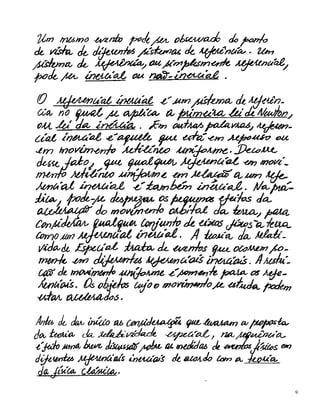 Um mesmo evento pode ser observado do ponto
de vista de diferentes sistemas de referência. Um
sistema de referência, ou simplesmente referencial,
pode ser inercial ou não-inercial.
O referencial inercial é um sistema de referên-
cia no qual se aplica a primeira lei de Newton,
ou lei da inércia. Em outras palavras, referen-
cial inercial é aquele que está em repouso ou
em movimento retilíneo uniforme. Decorre
desse fato, que qualquer referencial em movi-
mento retilíneo uniforme em relação a um refe-
rencial inercial é também inercial. Na prá-
tica, pode-se desprezar os pequenos efeitos da
aceleração do movimento orbital da terra, para
considerar qualquer conjunto de eixos fixos à terra
como um referencial inercial. A teoria da relati-
vidade Especial trata de eventos que ocorrem so-
mente em diferentes referenciais inerciais. A restri-
ção de movimento uniforme é somente para os refe-
renciais. Os objetos cujo o movimento se estuda podem
estar acelerados.
Antes de dar início as considerações que levaram a proposta
da teoria da relatividade especial, na sequência
é feito uma breve discussão sobre as medidas de eventos físicos em
diferentes referenciais inerciais de acordo com a teoria
da física clássica.
9